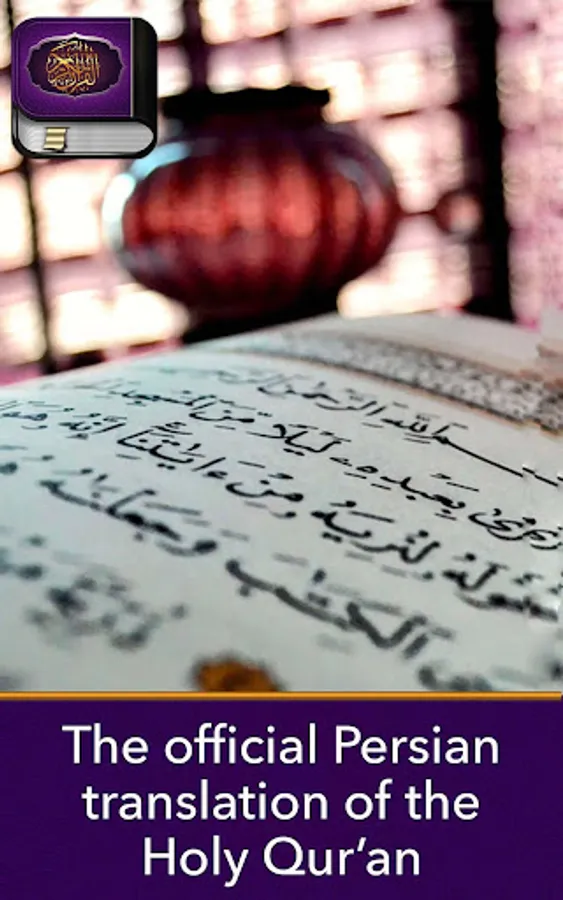 بِسْمِ اللَّهِ الرَّحْمَٰنِ
بِعَبْدِهِ لَيْلًا مِّنَ الْمَسْجِدِ
حَوْلَهُ لِنُرِيَهُ مِنْ ءَايَٰتِنَا إِنَّهُ هُوَ
الْكِتَٰبَ وَجَعَلْنَٰهُ
The official Persian
translation of the
Holy Qur’an